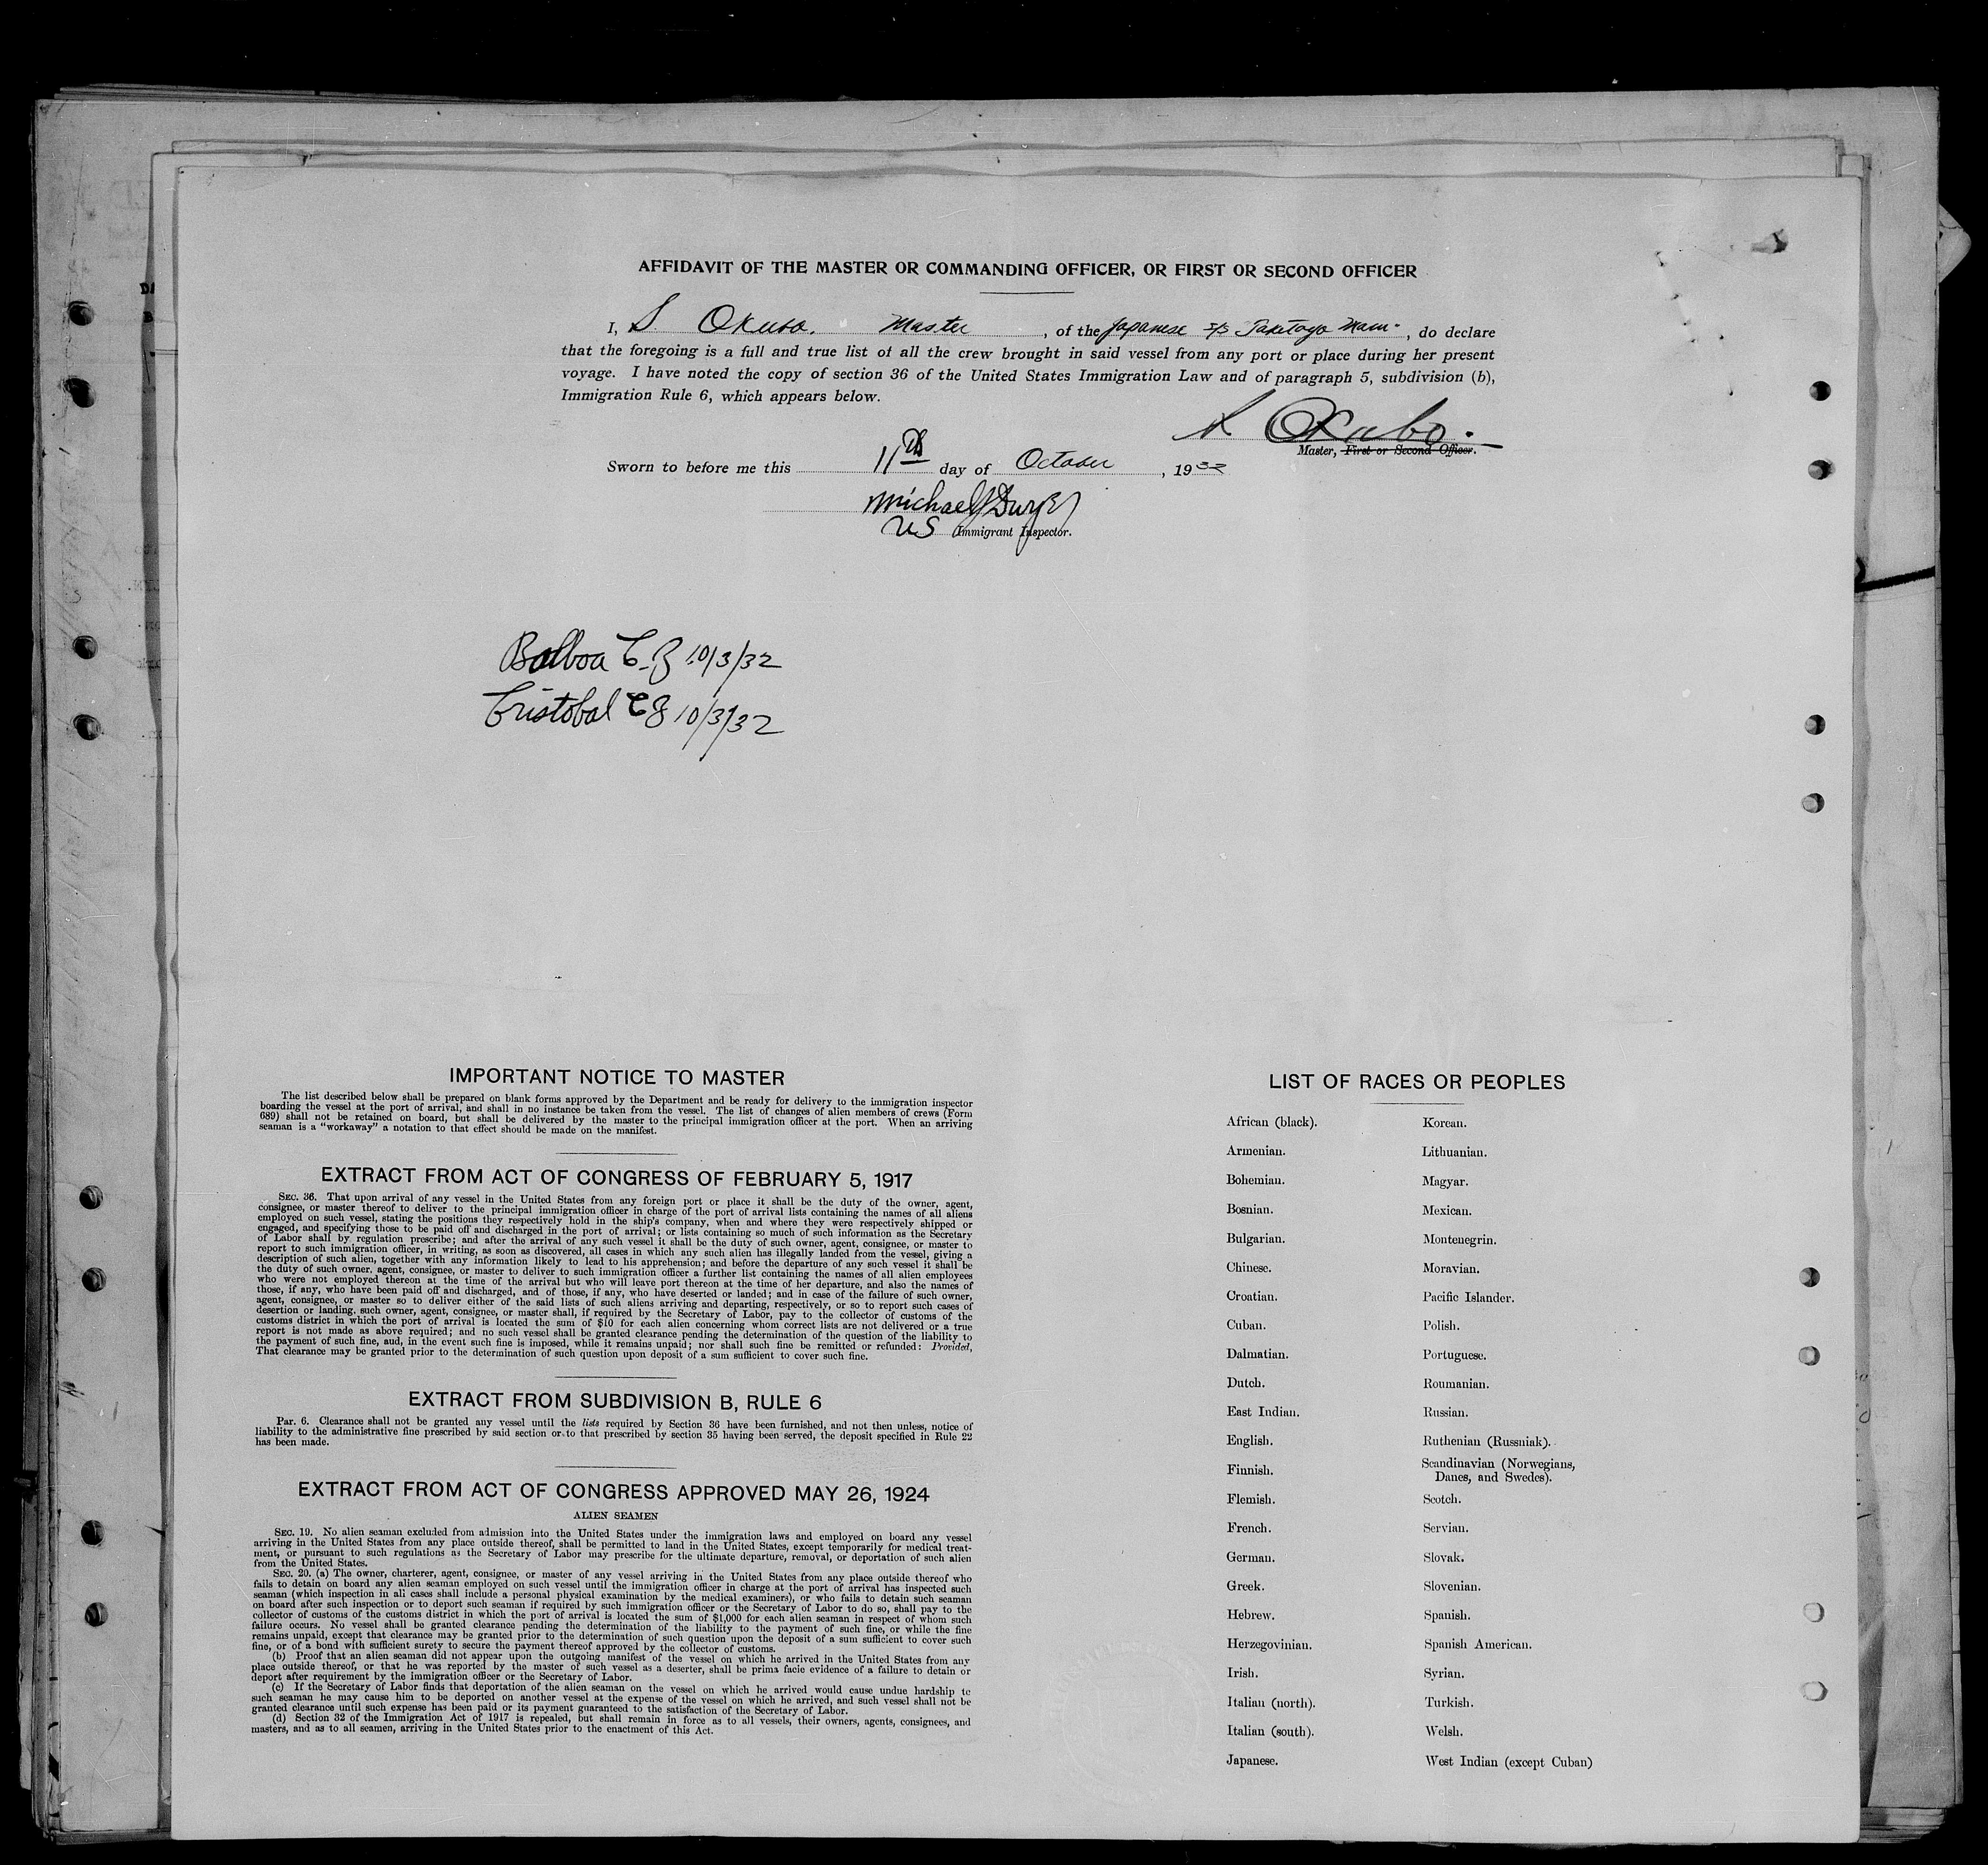 AFFIDAVIT OF THE MASTER OR COMMANDING OFFICER, OR FIRST OR SECOND OFFICER
I, S Okubo. Master, of the Japanese S/S Taketoyo Maru, do declare
that the foregoing is a full and true list of all the crew brought in said vessel from any port or place during her present
voyage. I have noted the copy of section 36 of the United States Immigration Law and of paragraph 5, subdivision (b),
Immigration Rule 6, which appears below.
S Okubo.
Master, First or Second Officer.
Sworn to before me this 11th day of October, 1932
Michael J
US Immigrant Inspector.
Balboa C.Z 10/3/32
Cristobal CZ 10/3/32
IMPORTANT NOTICE TO MASTER
The list described below shall be prepared on blank forms approved by the Department and be ready for delivery to the immigration inspector
boarding the vessel at the port of arrival, and shall in no instance be taken from the vessel. The list of changes of alien members of crews (Form
689) shall not be retained on board, but shall be delivered by the master to the principal immigration officer at the port. When an arriving
seaman is a "workaway" a notation to that effect should be made on the manifest.
EXTRACT FROM ACT OF CONGRESS OF FEBRUARY 5, 1917
SEC. 36. That upon arrival of any vessel in the United States from any foreign port or place it shall be the duty of the owner, agent,
consignee, or master thereof to deliver to the principal immigration officer in charge of the port of arrival lists containing the names of all aliens
employed on such vessel, stating the positions they respectively hold in the ship's company, when and where they were respectively shipped or
engaged, and specifying those to be paid off and discharged in the port of arrival; or lists containing so much of such information as the Secretary
of Labor shall by regulation prescribe; and after the arrival of any such vessel it shall be the duty of such owner, agent, consignee, or master to
report to such immigration officer, in writing, as soon as discovered, all cases in which any such alien has illegally landed from the vessel, giving a
description of such alien, together with any information likely to lead to his apprehension; and before the departure of any such vessel it shall be
the duty of such owner, agent, consignee, or master to deliver to such immigration officer a further list containing the names of all alien employees
who were not employed thereon at the time of the arrival but who will leave port thereon at the time of her departure, and also the names of
those, if any, who have been paid off and discharged, and of those, if any, who have deserted or landed; and in case of the failure of such owner,
agent, consignee, or master so to deliver either of the said lists of such aliens arriving and departing, respectively, or so to report such cases of
desertion or landing, such owner, agent, consignee, or master shall, if required by the Secretary of Labor, pay to the collector of customs of the
customs district in which the port of arrival is located the sum of $10 for each alien concerning whom correct lists are not delivered or a true
report is not made as above required; and no such vessel shall be granted clearance pending the determination of the question of the liability to
the payment of such fine, and, in the event such fine is imposed, while it remains unpaid; nor shall such fine be remitted or refunded: Provided,
That clearance may be granted prior to the determination of such question upon deposit of a sum sufficient to cover such fine.
EXTRACT FROM SUBDIVISION B, RULE 6
Par. 6. Clearance shall not be granted any vessel until the lists required by Section 36 have been furnished, and not then unless, notice of
liability to the administrative fine prescribed by said section or to that prescribed by section 35 having been served, the deposit specified in Rule 22
has been made.
EXTRACT FROM ACT OF CONGRESS APPROVED MAY 26, 1924
ALIEN SEAMEN
SEC. 19. No alien seaman excluded from admission into the United States under the immigration laws and employed on board any vessel
arriving in the United States from any place outside thereof, shall be permitted to land in the United States, except temporarily for medical treat-
ment, or pursuant to such regulations as the Secretary of Labor may prescribe for the ultimate departure, removal, or deportation of such alien
from the United States.
SEC. 20. (a) The owner, charterer, agent, consignee, or master of any vessel arriving in the United States from any place outside thereof who
fails to detain on board any alien seaman employed on such vessel until the immigration officer in charge at the port of arrival has inspected such
seaman (which inspection in all cases shall include a personal physical examination by the medical examiners), or who fails to detain such seaman
on board after such inspection or to deport such seaman if required by such immigration officer or the Secretary of Labor to do so, shall pay to the
collector of customs of the customs district in which the port of arrival is located the sum of $1,000 for each alien seaman in respect of whom such
failure occurs. No vessel shall be granted clearance pending the determination of the liability to the payment of such fine, or while the fine
remains unpaid, except that clearance may be granted prior to the determination of such question upon the deposit of a sum sufficient to cover such
fine, or of a bond with sufficient surety to secure the payment thereof approved by the collector of customs.
(b) Proof that an alien seaman did not appear upon the outgoing manifest of the vessel on which he arrived in the United States from any
place outside thereof, or that he was reported by the master of such vessel as a deserter, shall be prima facie evidence of a failure to detain or
deport after requirement by the immigration officer or the Secretary of Labor.
(c) If the Secretary of Labor finds that deportation of the alien seaman on the vessel on which he arrived would cause undue hardship to
such seaman he may cause him to be deported on another vessel at the expense of the vessel on which he arrived, and such vessel shall not be
granted clearance until such expense has been paid or its payment guaranteed to the satisfaction of the Secretary of Labor.
(d) Section 32 of the Immigration Act of 1917 is repealed, but shall remain in force as to all vessels, their owners, agents, consignees, and
masters, and as to all seamen, arriving in the United States prior to the enactment of this Act.
LIST OF RACES OR PEOPLES
African (black). Korean.
Armenian. Lithuanian.
Bohemian. Magyar.
Bosnian. Mexican.
Bulgarian. Montenegrin.
Chinese. Moravian.
Croatian. Pacific Islander.
Cuban. Polish.
Dalmatian. Portuguese.
Dutch. Roumanian.
East Indian. Russian.
English. Ruthenian (Russniak).
Finnish. Scandinavian (Norwegians,
Danes, and Swedes).
Flemish. Scotch.
French. Servian.
German. Slovak.
Greek. Slovenian.
Hebrew. Spanish.
Herzegovinian. Spanish American.
Irish. Syrian.
Italian (north). Turkish.
Italian (south). Welsh.
Japanese. West Indian (except Cuban)